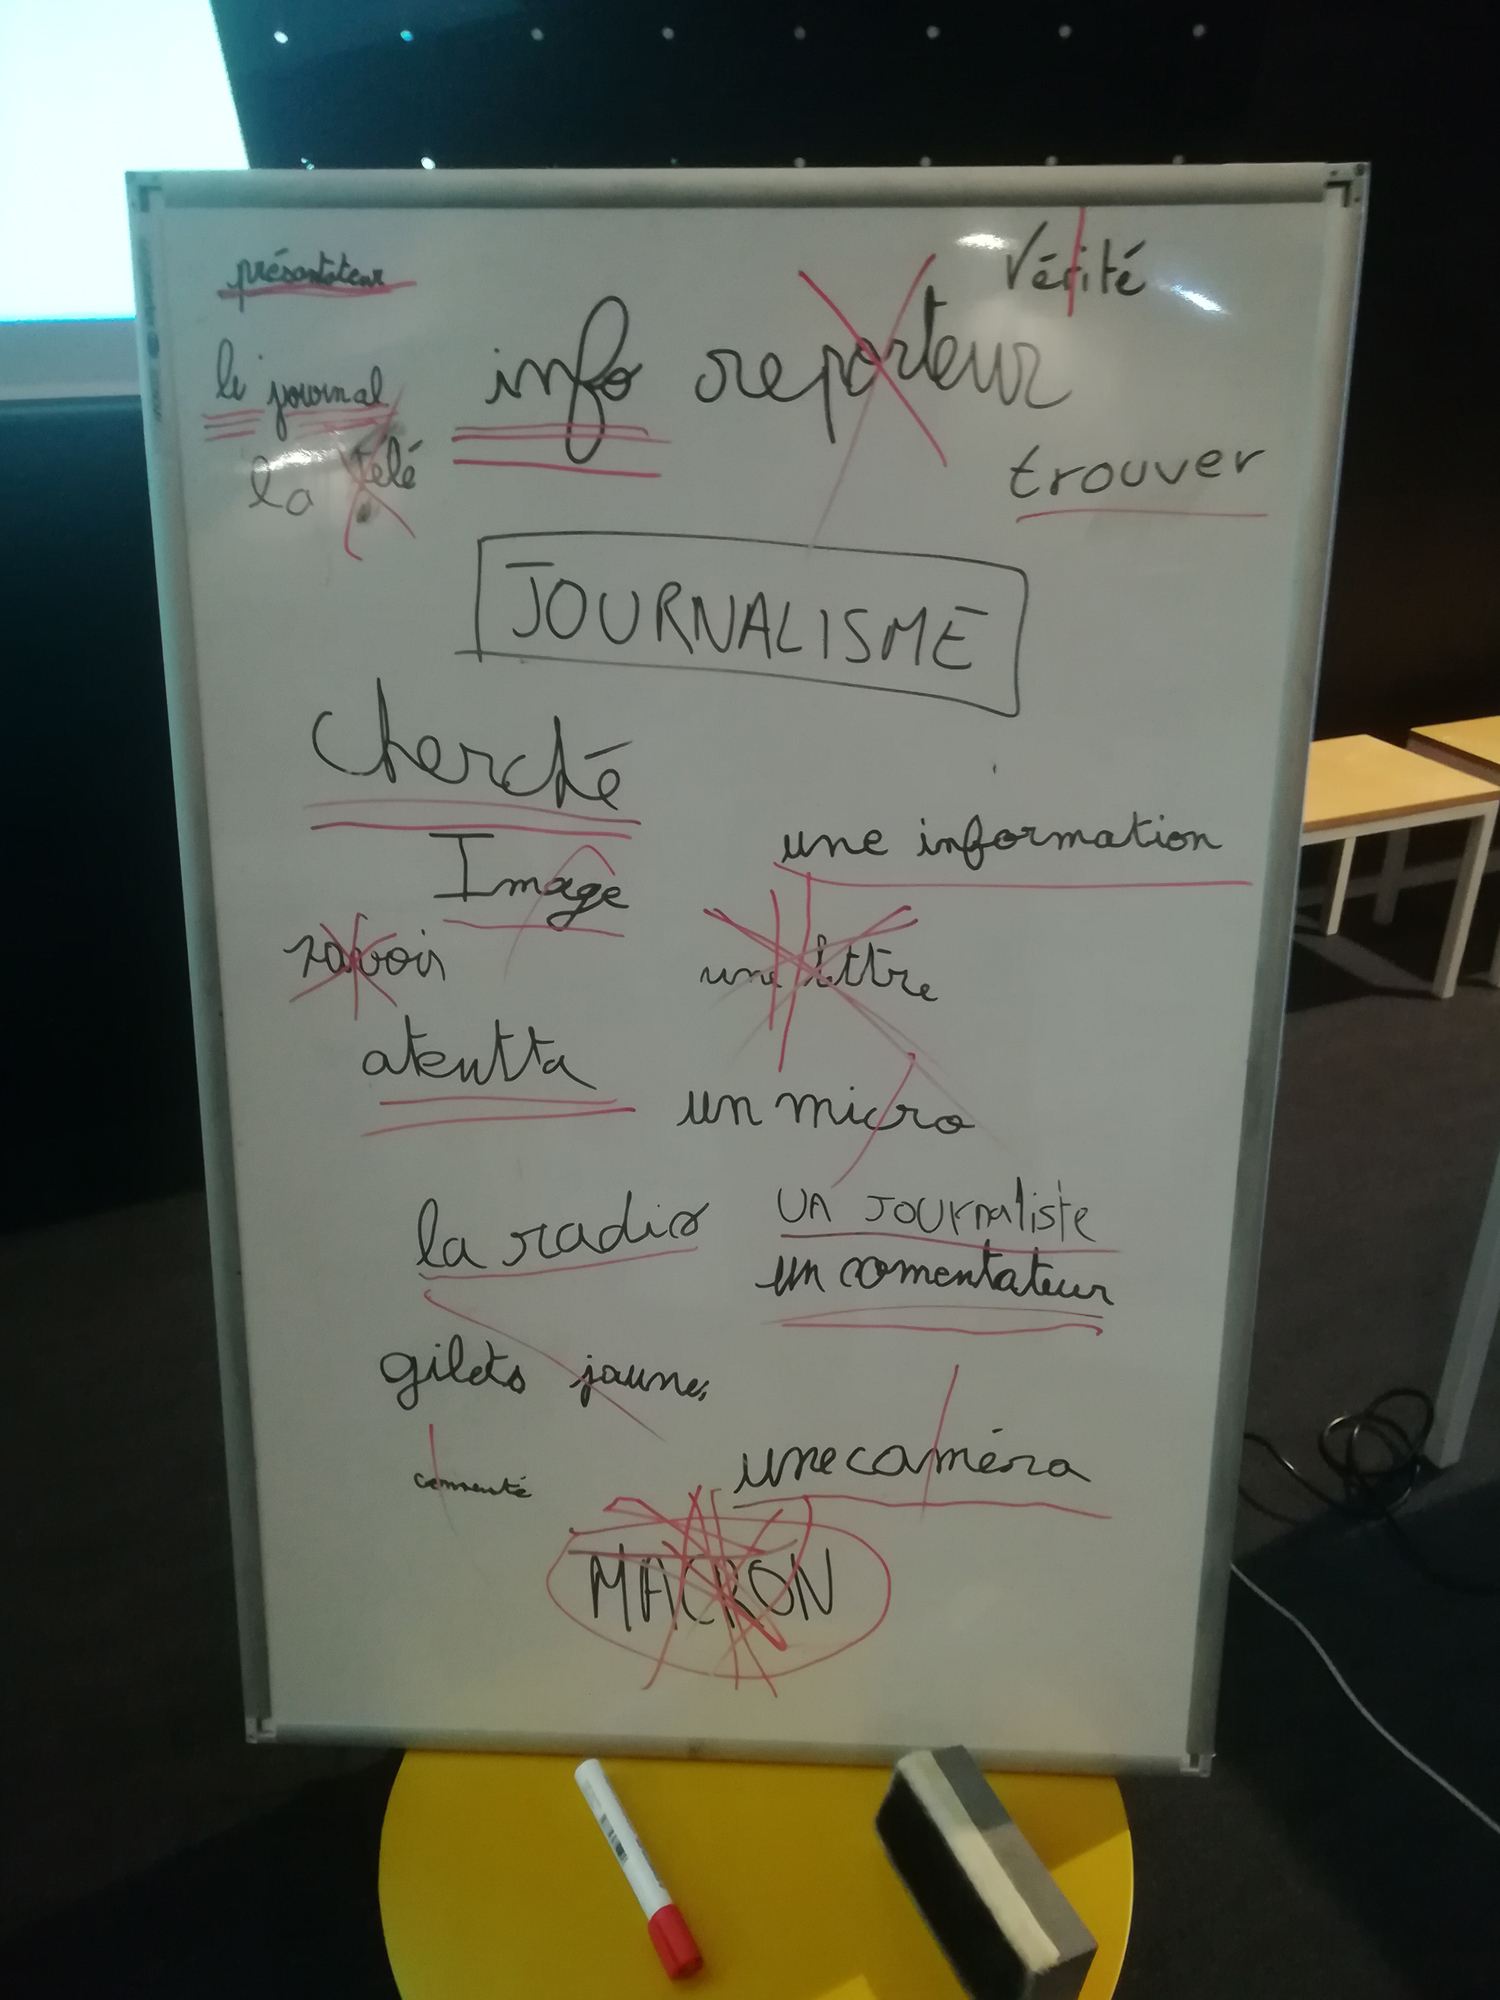 présentateur
Vérité
info reporteur
le journal
la télé
trouver
JOURNALISME
cherché
une information
Image
savoir
une lttre
atentta
un micro
la radio
un journaliste
un comentateur
gilets jaunes
une caméra
commenté
MACRON